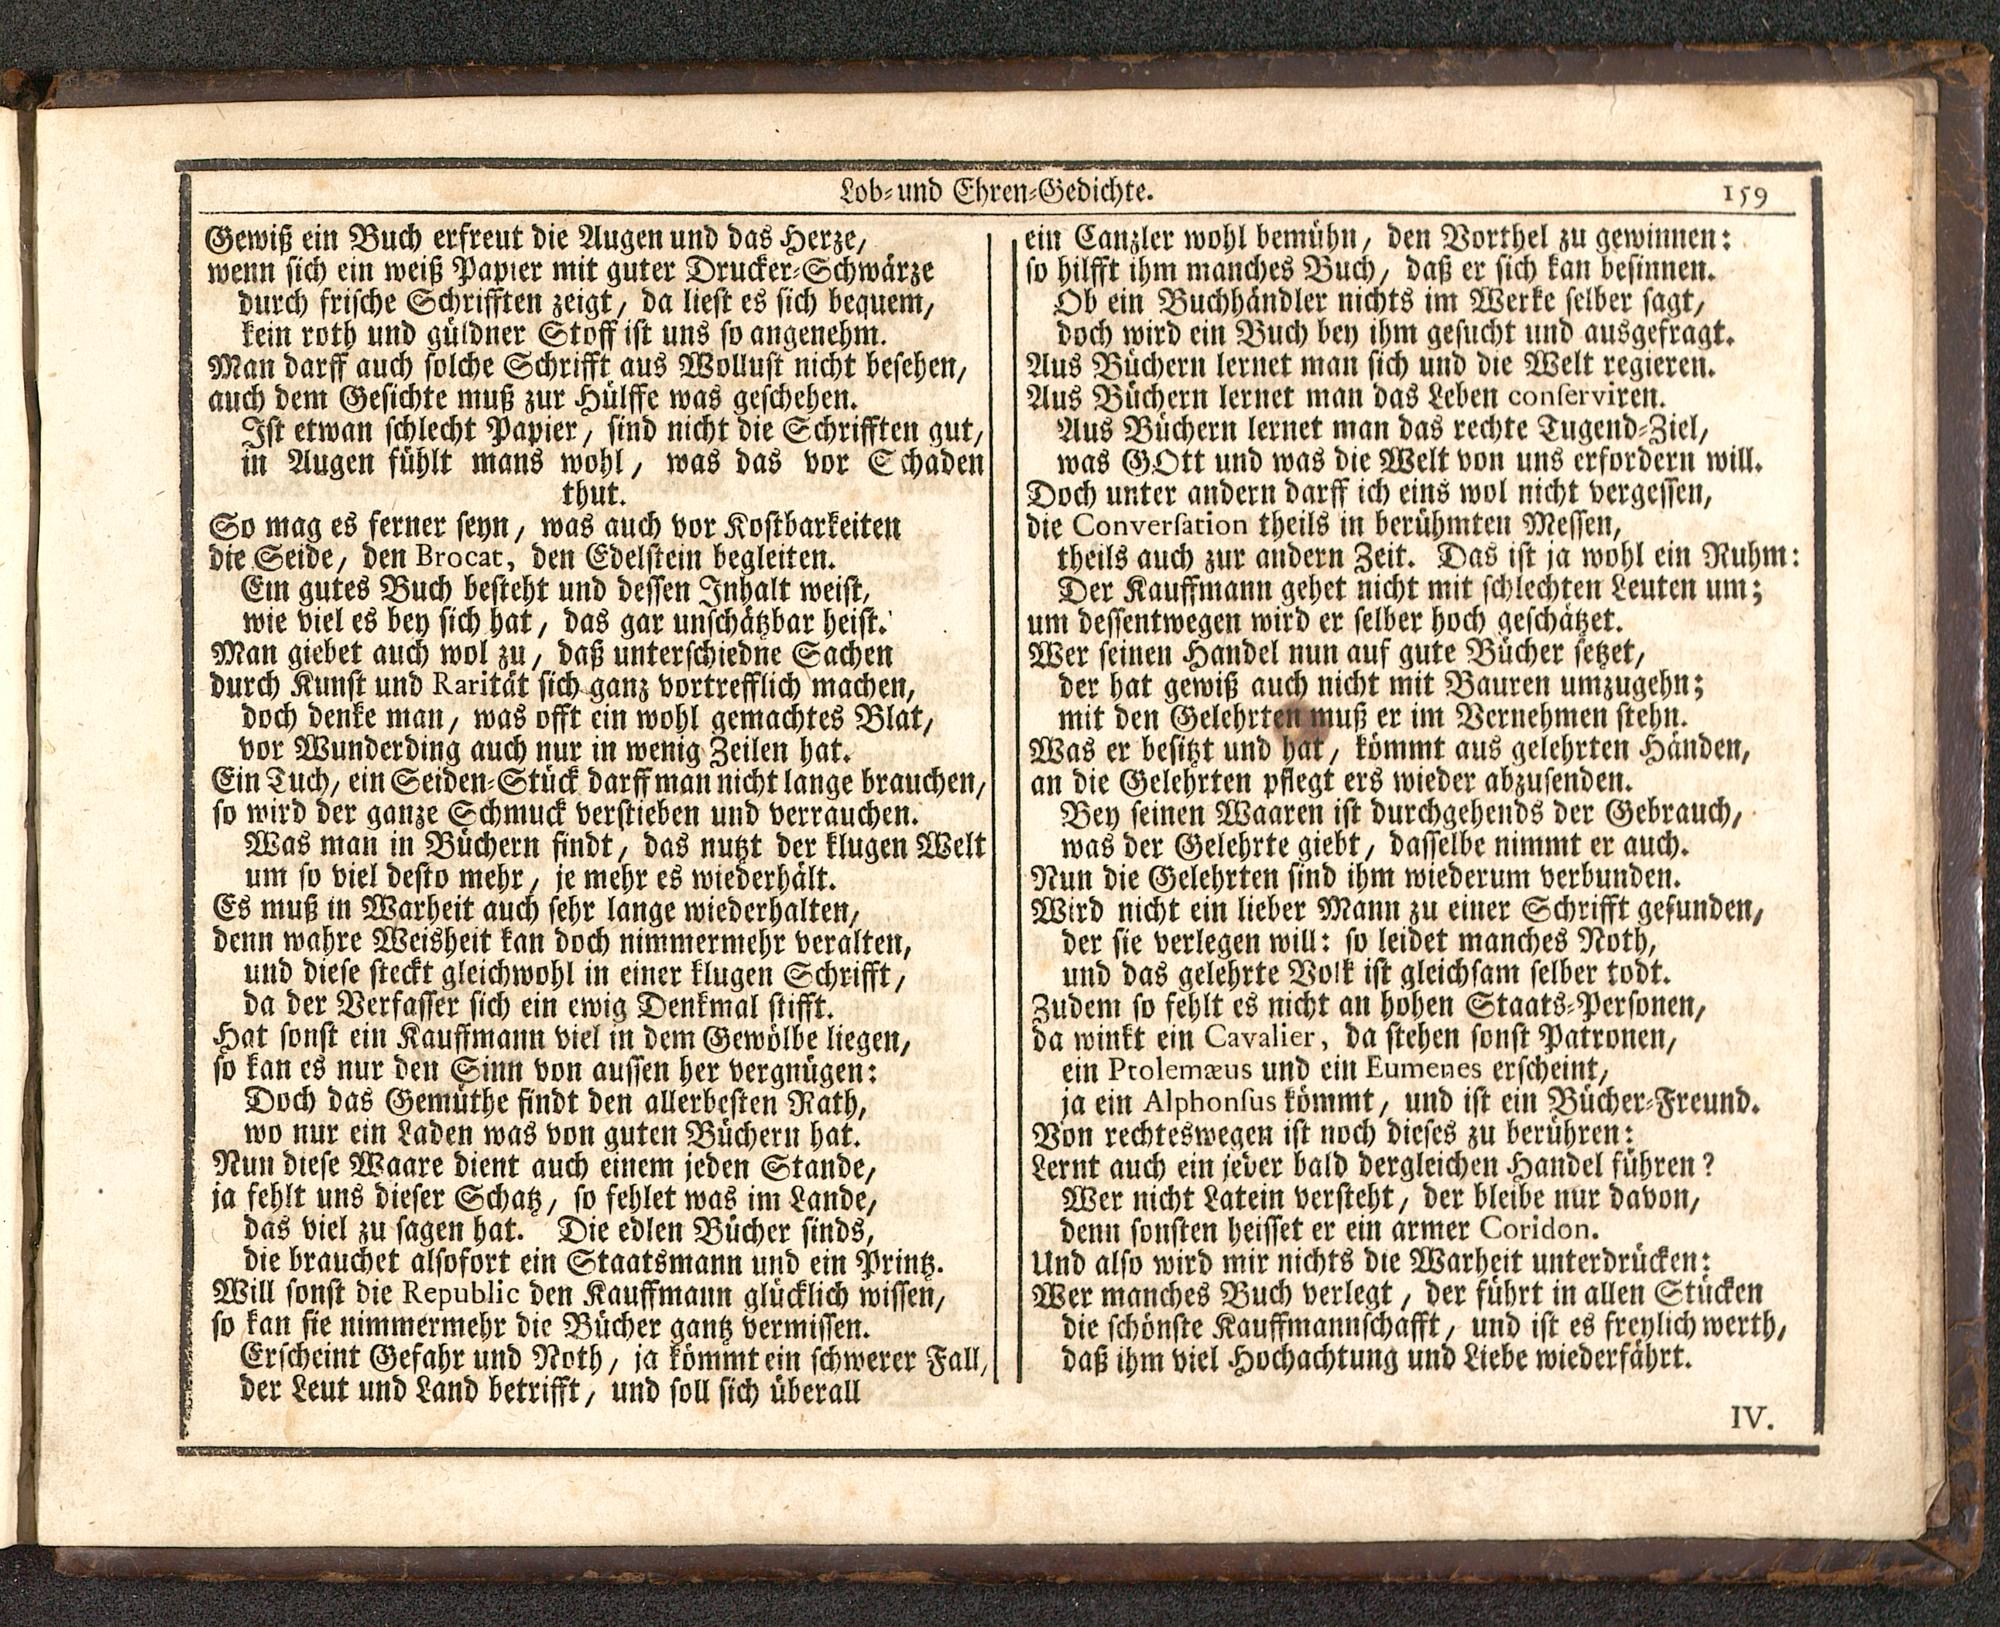 Lob- und Ehren-Gedichte. 159
Gewiß ein Buch erfreut die Augen und das Herze,
wenn sich ein weiß Papier mit guter Drucker-Schwärze
durch frische Schrifften zeigt, da liest es sich bequem,
kein roth und güldner Stoff ist uns so angenehm.
Man darff auch solche Schrifft aus Wollust nicht besehen,
auch dem Gesichte muß zur Hülffe was geschehen.
Ist etwan schlecht Papier, sind nicht die Schrifften gut,
in Augen fühlt mans wohl, was das vor Schaden
thut.
So mag es ferner seyn, was auch vor Kostbarkeiten
die Seide, den Brocat, den Edelstein begleiten.
Ein gutes Buch besteht und dessen Inhalt weist,
wie viel es bey sich hat, das gar unschätzbar heist.
Man giebet auch wol zu, daß unterschiedne Sachen
durch Kunst und Rarität sich ganz vortrefflich machen,
doch denke man, was offt ein wohl gemachtes Blat,
vor Wunderding auch nur in wenig Zeilen hat.
Ein Tuch, ein Seiden-Stück darff man nicht lange brauchen,
so wird der ganze Schmuck verstieben und verrauchen.
Was man in Büchern findt, das nutzt der klugen Welt
um so viel desto mehr, je mehr es wiederhält.
Es muß in Warheit auch sehr lange wiederhalten,
denn wahre Weisheit kan doch nimmermehr veralten,
und diese steckt gleichwohl in einer klugen Schrifft,
da der Verfasser sich ein ewig Denkmal stifft.
Hat sonst ein Kauffmann viel in dem Gewölbe liegen,
so kan es nur den Sinn von aussen her vergnügen:
Doch das Gemüthe findt den allerbesten Rath,
wo nur ein Laden was von guten Büchern hat.
Nun diese Waare dient auch einem jeden Stande,
ja fehlt uns dieser Schatz, so fehlet was im Lande,
das viel zu sagen hat. Die edlen Bücher sinds,
die brauchet alsofort ein Staatsmann und ein Printz.
Will sonst die Republic den Kauffmann glücklich wissen,
so kan sie nimmermehr die Bücher gantz vermissen.
Erscheint Gefahr und Noth, ja kömmt ein schwerer Fall,
der Leut und Land betrifft, und soll sich überall
ein Canzler wohl bemühn, den Vorthel zu gewinnen:
so hilfft ihm manches Buch, daß er sich kan besinnen.
Ob ein Buchhändler nichts im Werke selber sagt,
doch wird ein Buch bey ihm gesucht und ausgefragt.
Aus Büchern lernet man sich und die Welt regieren.
Aus Büchern lernet man das Leben conserviren.
Aus Büchern lernet man das rechte Tugend-Ziel,
was GOtt und was die Welt von uns erfordern will.
Doch unter andern darff ich eins wol nicht vergessen,
die Conversation theils in berühmten Messen,
theils auch zur andern Zeit. Das ist ja wohl ein Ruhm:
Der Kauffmann gehet nicht mit schlechten Leuten um;
um dessentwegen wird er selber hoch geschätzet.
Wer seinen Handel nun auf gute Bücher setzet,
der hat gewiß auch nicht mit Bauren umzugehn;
mit den Gelehrten muß er im Vernehmen stehn.
Was er besitzt und hat, kömmt aus gelehrten Händen,
an die Gelehrten pflegt ers wieder abzusenden.
Bey seinen Waaren ist durchgehends der Gebrauch,
was der Gelehrte giebt, dasselbe nimmt er auch.
Nun die Gelehrten sind ihm wiederum verbunden.
Wird nicht ein lieber Mann zu einer Schrifft gefunden,
der sie verlegen will: so leidet manches Noth,
und das gelehrte Volk ist gleichsam selber todt.
Zudem so fehlt es nicht an hohen Staats-Personen,
da winkt ein Cavalier, da stehen sonst Patronen,
ein Ptolemæus und ein Eumenes erscheint,
ja ein Alphonsus kömmt, und ist ein Bücher-Freund.
Von rechteswegen ist noch dieses zu berühren:
Lernt auch ein jeder bald dergleichen Handel führen?
Wer nicht Latein versteht, der bleibe nur davon,
denn sonsten heisset er ein armer Coridon.
Und also wird mir nichts die Warheit unterdrücken:
Wer manches Buch verlegt, der führt in allen Stücken
die schönste Kauffmannschafft, und ist es freylich werth,
daß ihm viel Hochachtung und Liebe wiederfährt.
IV.